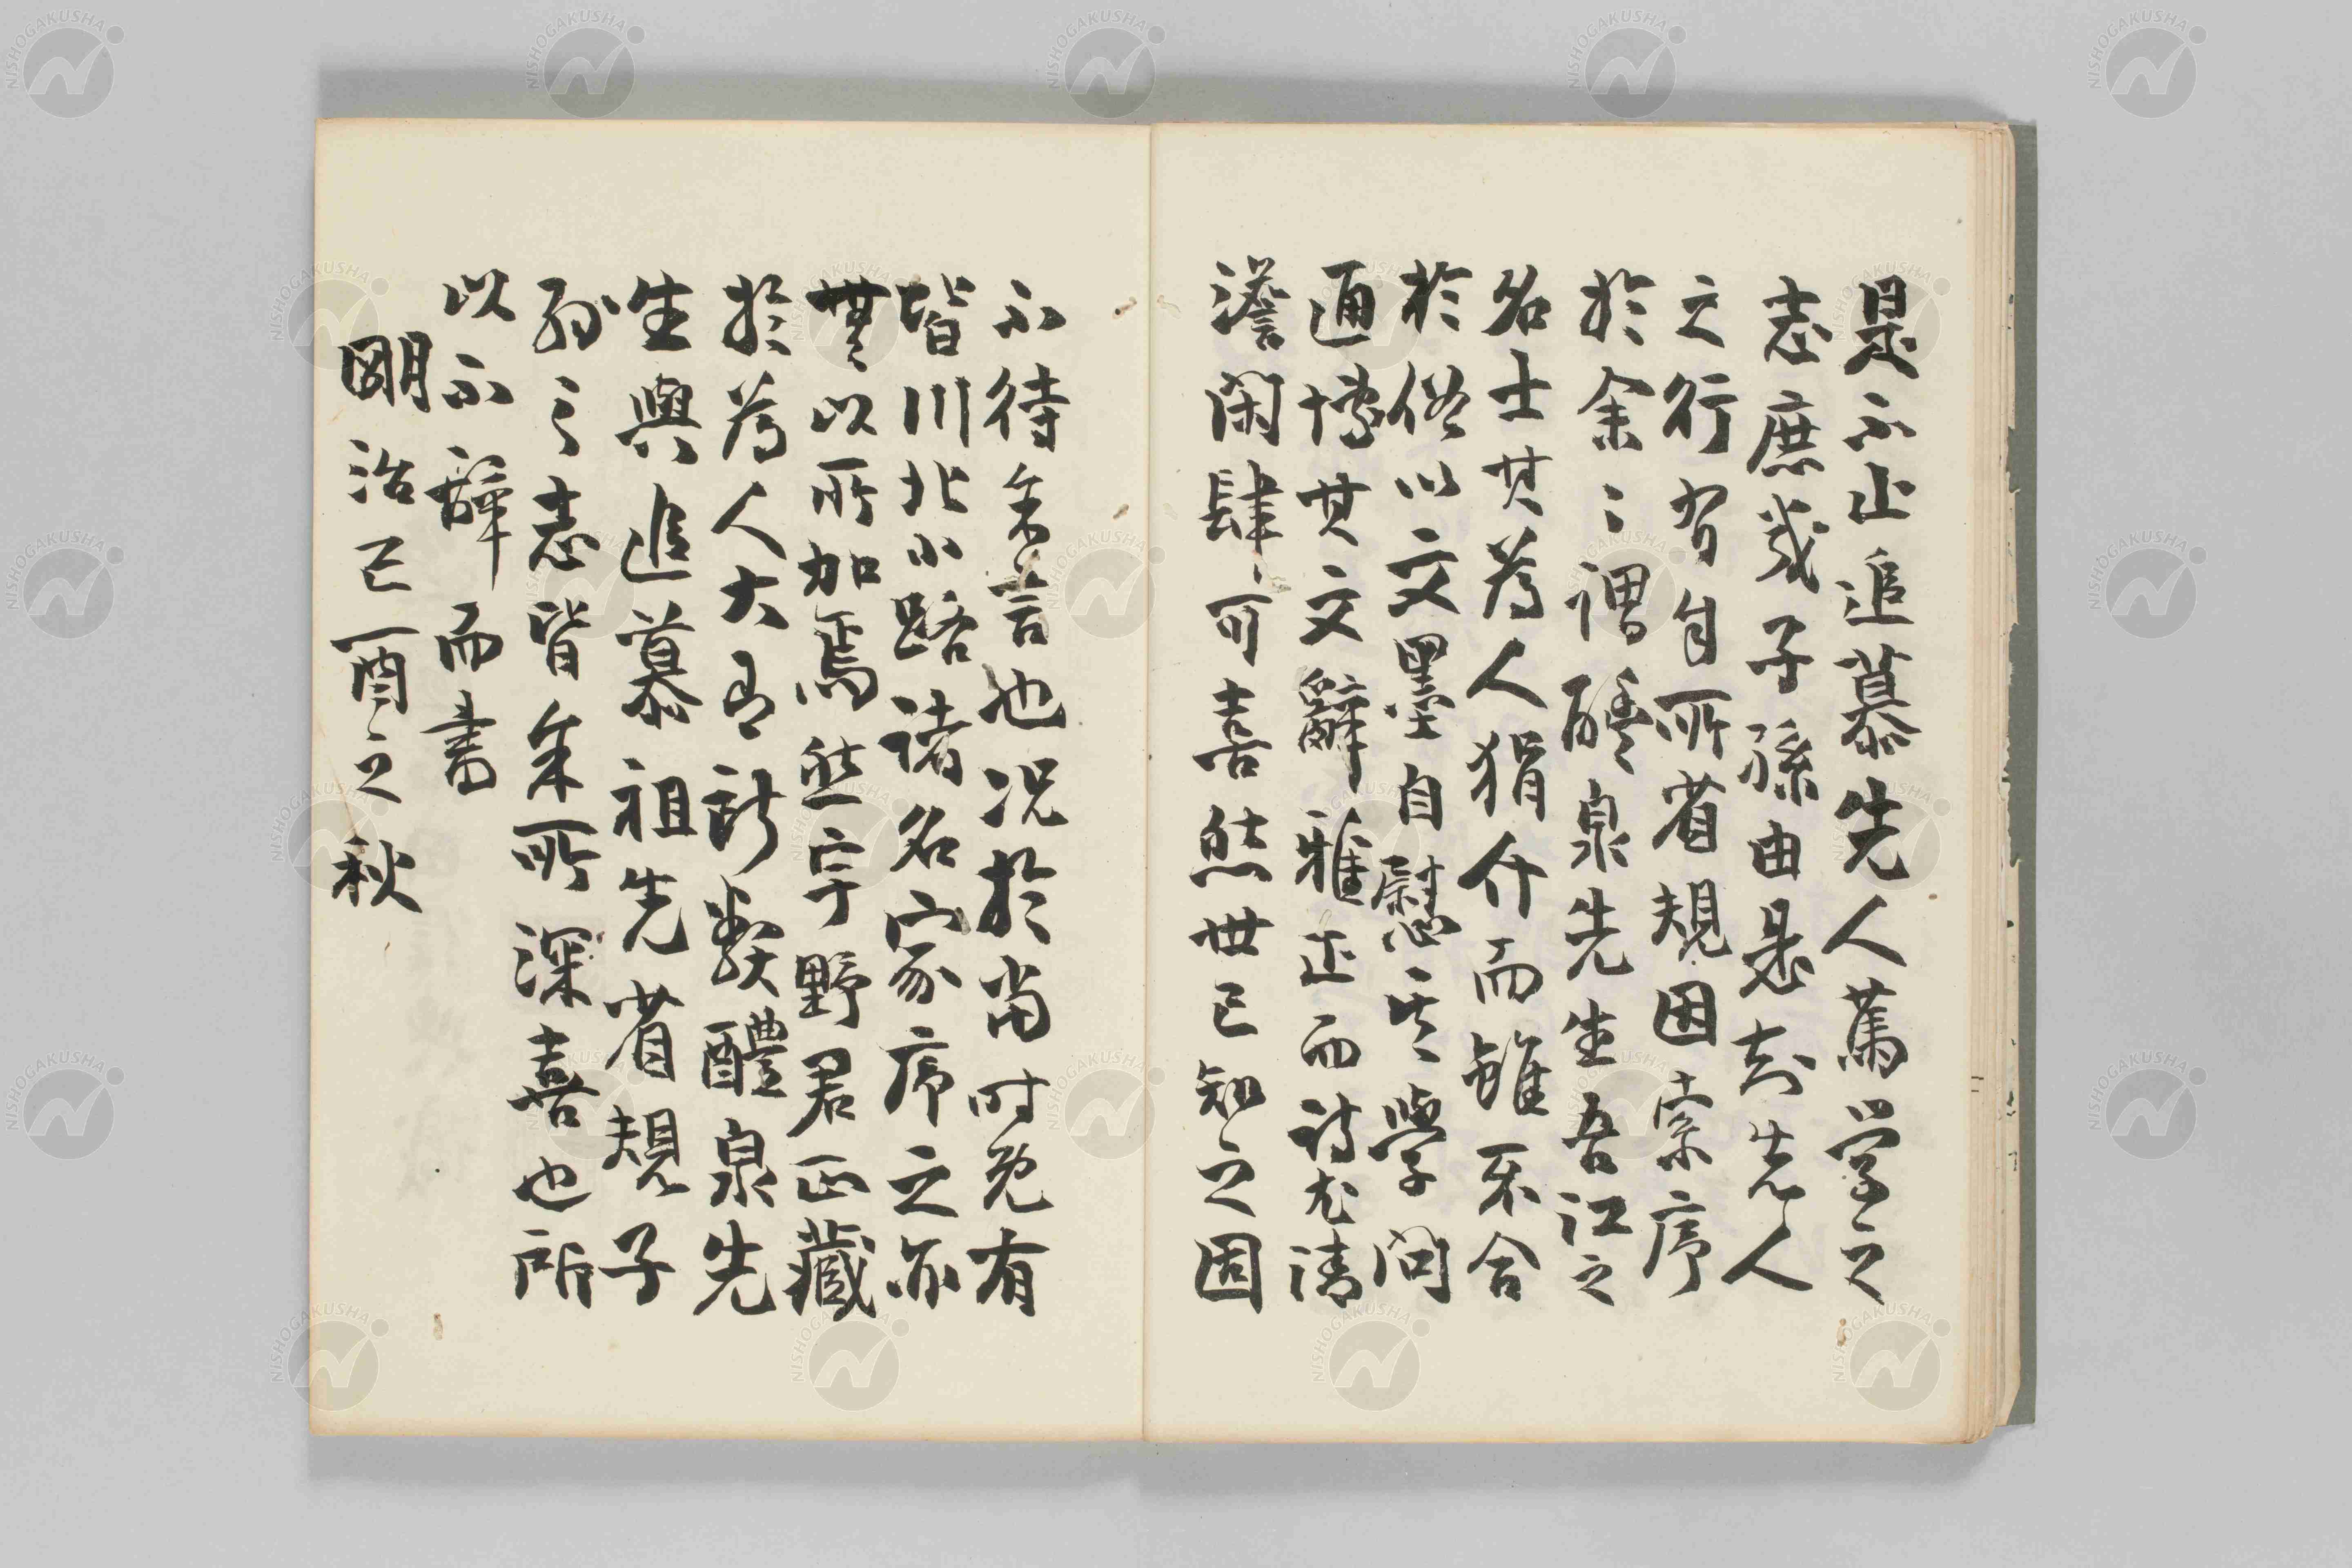 是不止追慕先人篤学之
志庶幾子孫由是知先人
之行有自所省規因索序
於余々謂醴泉先生吾江之
名士其為人狷介而雖不舍
於俗以文墨自慰其學問
通博其文辭雅正而詩尤清
澹閑肆可喜然世已知之固
不待余言也況於当时既有
皆川北小路諸名家序之亦
無以所加焉然宇野君正藏
於為人大有所類醴泉先
生與追慕祖先省規子
孫之志皆余所深喜也所
以不辭而書
明治己酉之秋
NISHOGAKUSHA